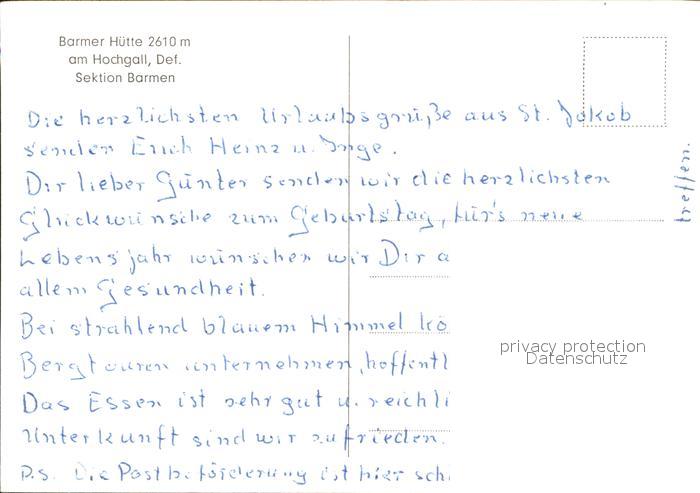 Barmer Hütte 2610 m
am Hochgall, Def.
Sektion Barmen
Die herzlichsten Urlaubsgrüße aus St. Jakob
senden Euch Heinz u. Inge.
Dir lieber Günter senden wir die herzlichsten
Glückwünsche zum Geburtstag, für's neue
Lebensjahr wünschen wir Dir a
allem Gesundheit.
Bei strahlend blauem Himmel kö
Bergtouren unternehmen, hoffentl
Das Essen ist sehr gut u. reichli
Unterkunft sind wir zufrieden.
P.S. Die Postbeförderung ist hier sch
treffen.
privacy protection
Datenschutz